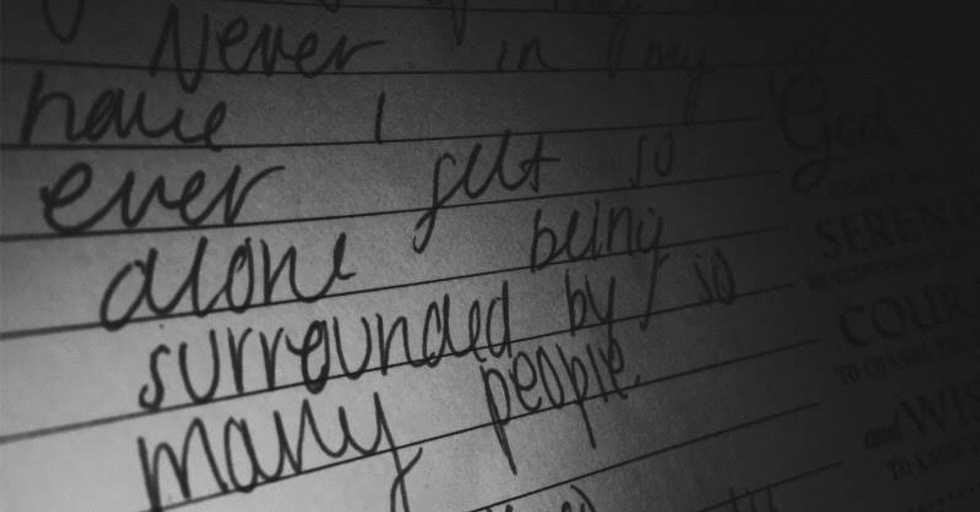 Never in my
have I
ever felt so
alone being
surrounded by so
many people.
God
SEREN
COUR
and WIS